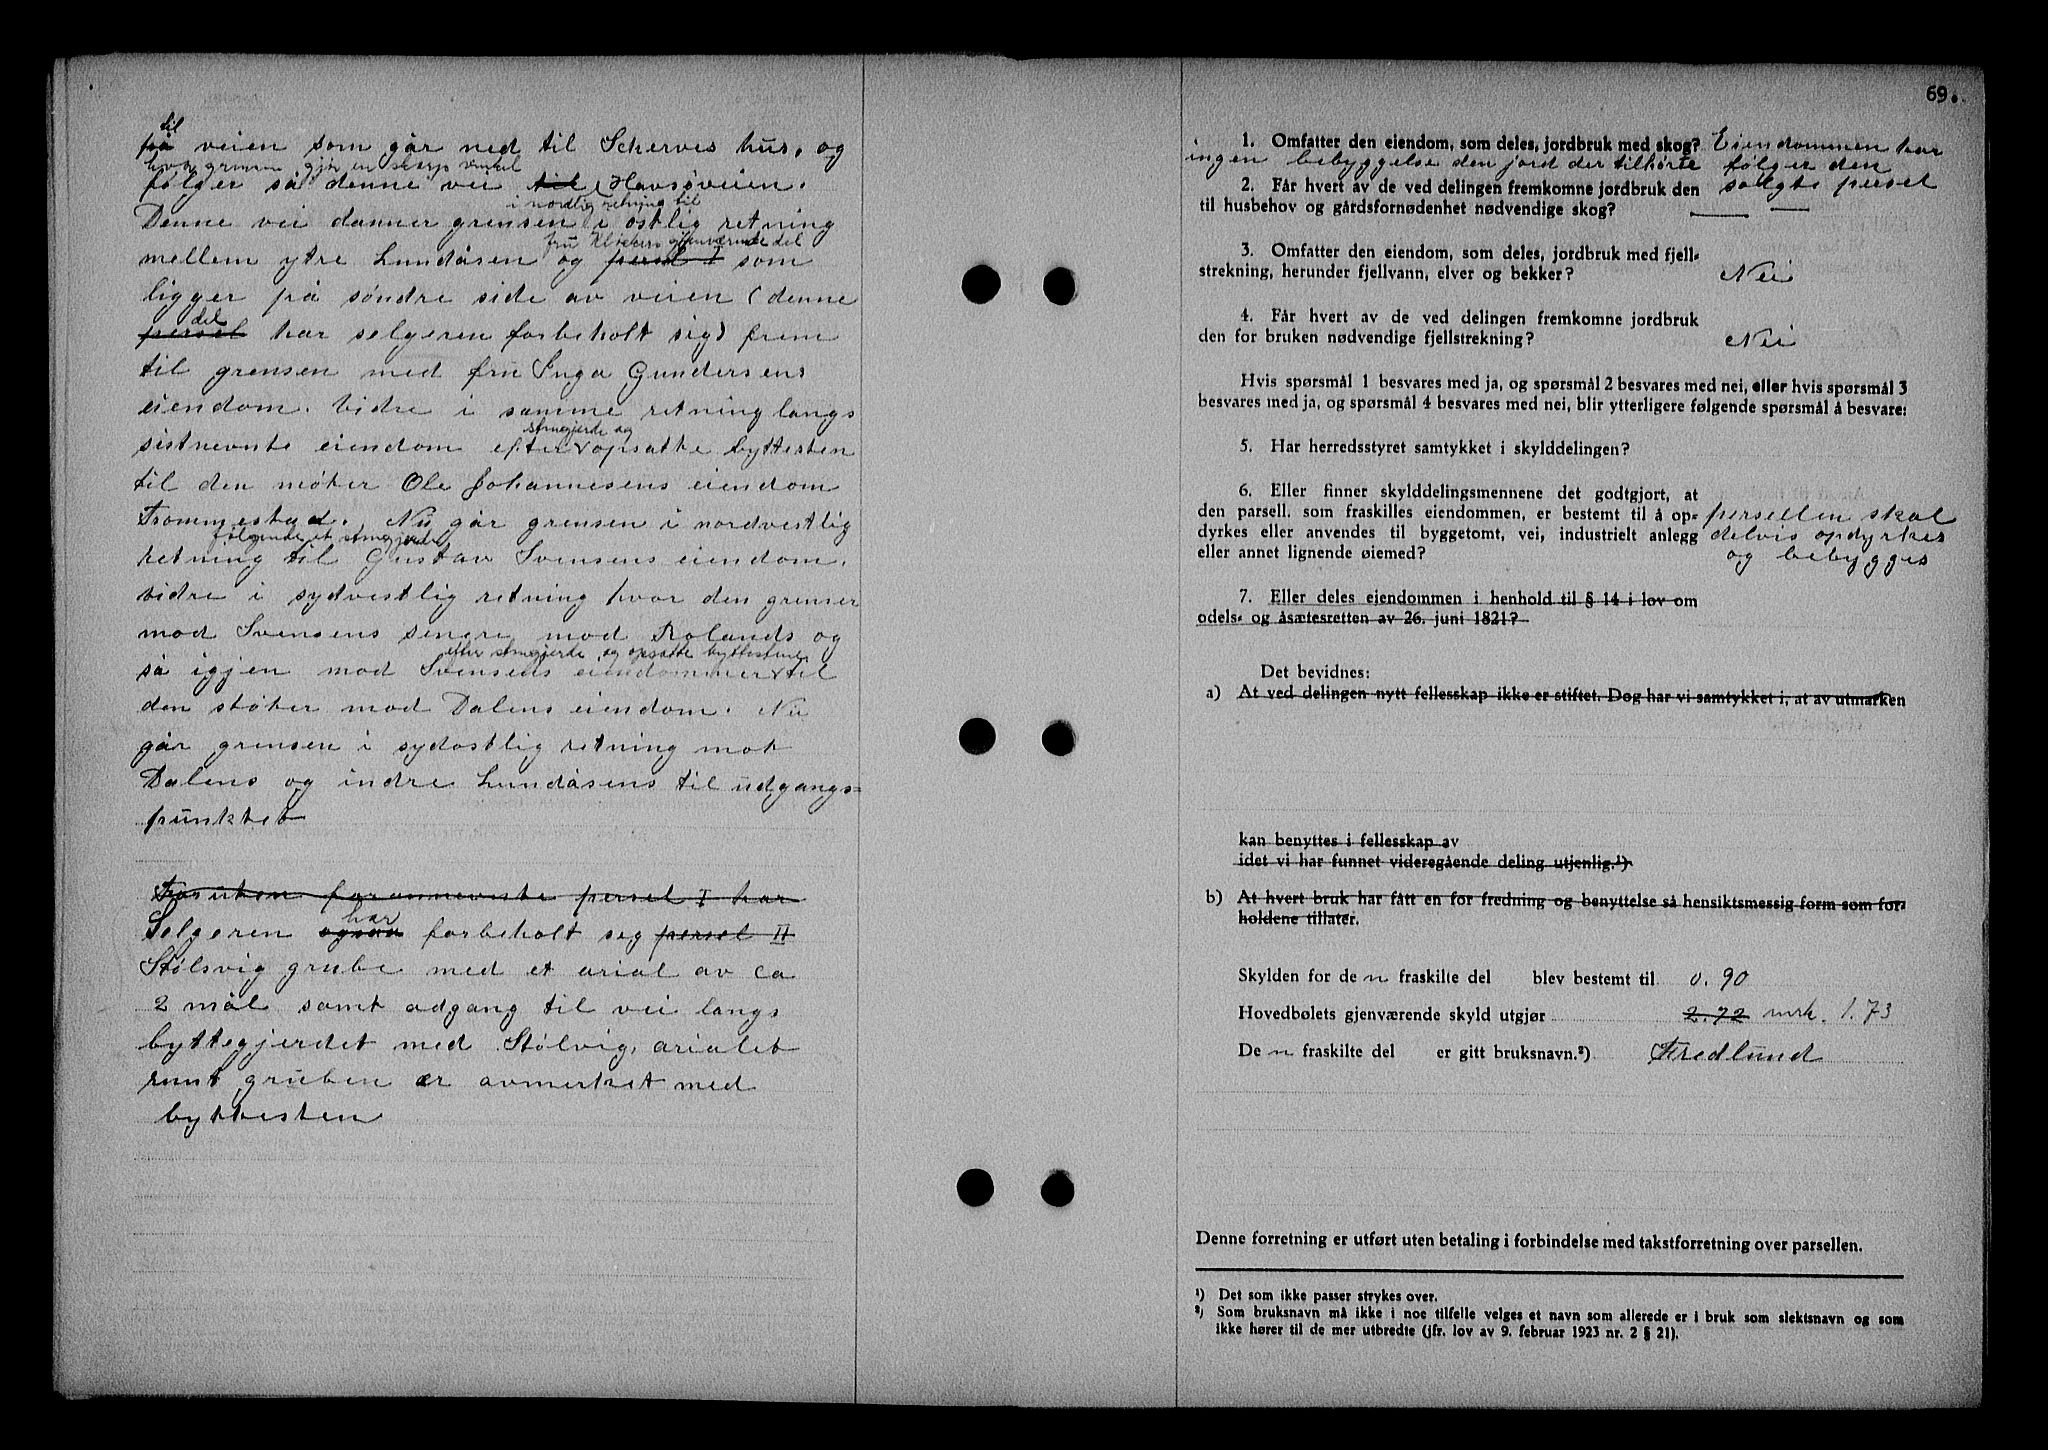 til
på veien som går ned til Schervis hus, og
hvor grensen gjør en skarp vinkel
følger så denne vei til Havsøveien.
i nordlig retning til
Denne vei danner grensen i østlig retning
fru Kløckers gjenværende del
mellem ytre Lundåsen og persel I som
ligger på søndre side av veien (denne
del
persel har selgeren forbeholt sig) frem
til grensen med fru Inga Gundersens
eiendom. Vidre i samme retning langs
stengjerde og
sistnevnte eiendom efter opsatte byttesten
til den møter Ole Johannesens eiendom
Trommestad. Nu går grensen i nordvestlig
følgende et stengjerde
retning til Gustav Svensens eiendom.
vidre i sydvestlig retning hvor den grenser
mod Svensens senere mod Rolands og
efter stengjerde og opsatte byttestene
så igjen mod Svensens eiendommer til
den støter mod Dalens eiendom. Nu
går grensen i sydostlig retning mot
Dalens og indre Lundåsens til udgangs=
punktet
Foruten forannevnte persel I har
har
Selgeren også forbeholt seg persel II
Stølsvig grube med et arial av ca
2 mål samt adgang til vei langs
byttegjerdet med Stølvig, arialet
runt gruben er avmerket med
byttesten
69.
1. Omfatter den eiendom, som deles, jordbruk med skog? Eiendommen har
ingen bebyggelse den jord der tilhørte følger den
2. Får hvert av de ved delingen fremkomne jordbruk den solgte persel
til husbehov og gårdsfornødenhet nødvendige skog? — —
3. Omfatter den eiendom, som deles, jordbruk med fjell-
strekning, herunder fjellvann, elver og bekker? Nei
4. Får hvert av de ved delingen fremkomne jordbruk
den for bruken nødvendige fjellstrekning? Nei
Hvis spørsmål 1 besvares med ja, og spørsmål 2 besvares med nei, eller hvis spørsmål 3
besvares med ja, og spørsmål 4 besvares med nei, blir ytterligere følgende spørsmål å besvare:
5. Har herredsstyret samtykket i skylddelingen?
6. Eller finner skylddelingsmennene det godtgjort, at
den parsell, som fraskilles eiendommen, er bestemt til å op- persellen skal
dyrkes eller anvendes til byggetomt, vei, industrielt anlegg delvis opdyrkes
eller annet lignende øiemed? og bebygges
7. Eller deles eiendommen i henhold til § 14 i lov om
odels- og åsætesretten av 26. juni 1821?
Det bevidnes:
a) At ved delingen nytt fellesskap ikke er stiftet. Dog har vi samtykket i, at av utmarken
kan benyttes i fellesskap av
idet vi har funnet videregående deling utjenlig.¹)
b) At hvert bruk har fått en for fredning og benyttelse så hensiktsmessig form som for-
holdene tillater.
Skylden for de n fraskilte del blev bestemt til 0.90
Hovedbølets gjenværende skyld utgjør 2.72 mrk. 1.73
De n fraskilte del er gitt bruksnavn.²) Fredlund
Denne forretning er utført uten betaling i forbindelse med takstforretning over parsellen.
¹) Det som ikke passer strykes over.
²) Som bruksnavn må ikke i noe tilfelle velges et navn som allerede er i bruk som slektsnavn og som
ikke hører til de mer utbredte (jfr. lov av 9. februar 1923 nr. 2 § 21).